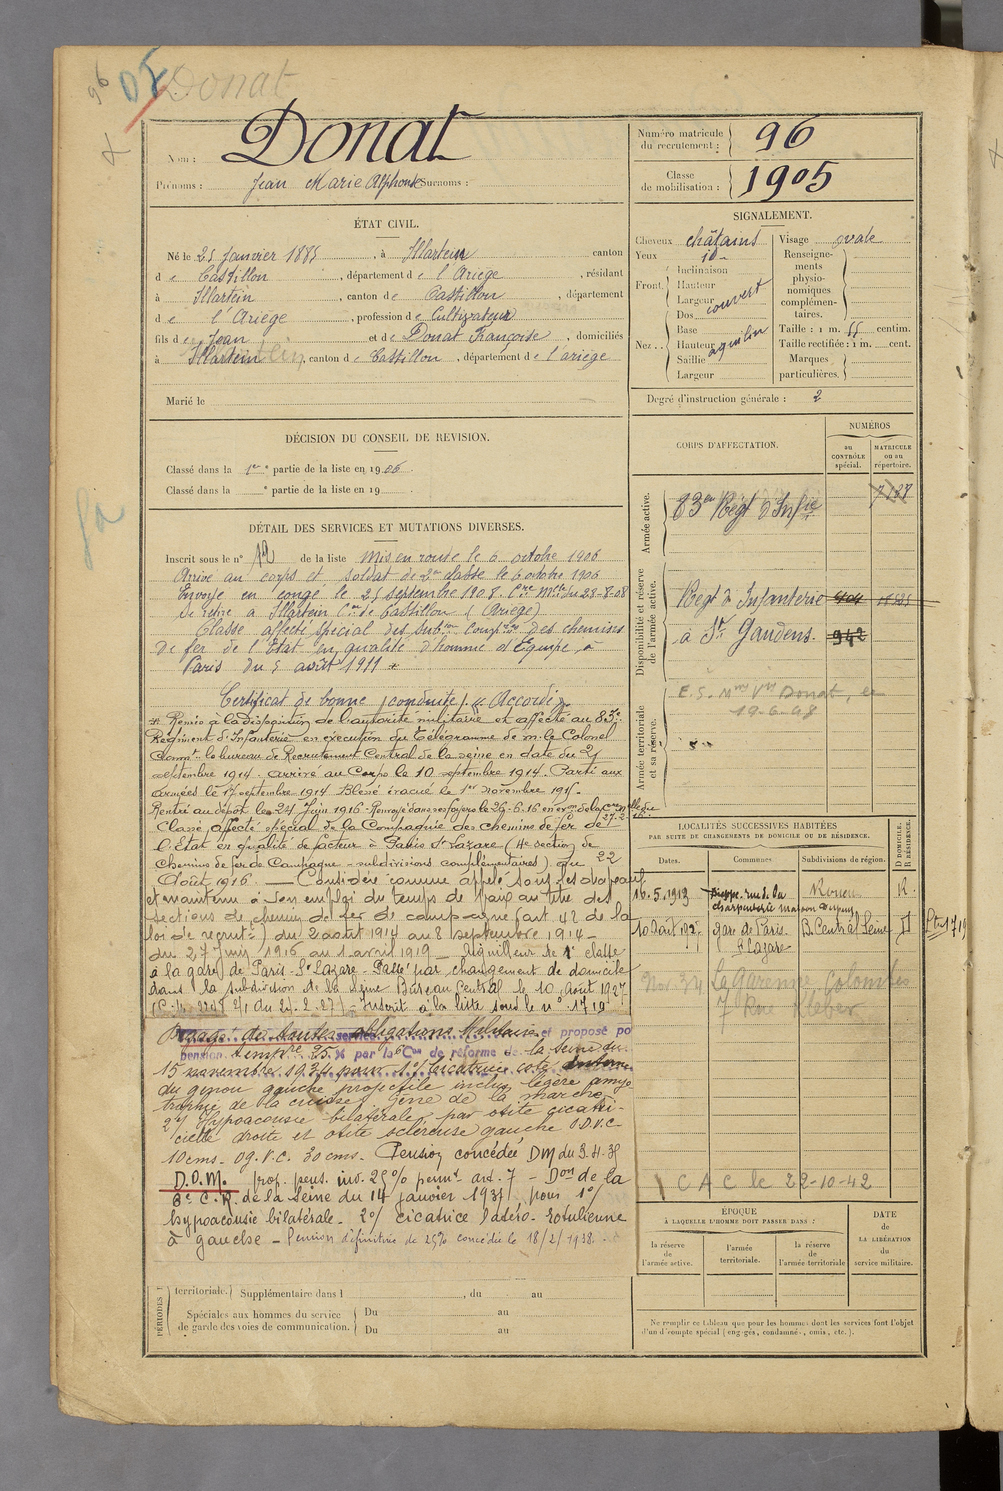 96
Donat
Nom : Donat
Prénoms : Jean Marie Alphonse Surnoms :
Numéro matricule du recrutement : 96
Classe de mobilisation : 1905
ÉTAT CIVIL.
Né le 25 janvier 1885, à Illartein canton
de Castillon, département de l'Ariège, résidant
à Illartein, canton de Castillon, département
de l'Ariège, profession de Cultivateur
fils de Jean et de Donat Françoise, domiciliés
à Illartein, canton de Castillon, département de l'ariège
Marié le
SIGNALEMENT.
Cheveux châtains
Yeux id
Front. Inclinaison
Hauteur
Largeur couvert
Nez. Dos
Base
Hauteur aquilin
Saillie
Largeur
Visage ovale
Renseignements physionomiques complémentaires.
Taille : 1 m. 55 centim.
Taille rectifiée : 1 m. cent.
Marques particulières.
Degré d'instruction générale : 2
DÉCISION DU CONSEIL DE REVISION.
Classé dans la 1re partie de la liste en 1906.
Classé dans la e partie de la liste en 19 .
DÉTAIL DES SERVICES ET MUTATIONS DIVERSES.
Inscrit sous le n° 12 de la liste Mis en route le 6 octobre 1906
Arrivé au corps et soldat de 2e classe le 6 octobre 1906
Envoyé en congé le 25 septembre 1908 Cre Mlle du 28-8-08
se retire à Illartein Con de Castillon (Ariège)
Classé affecté spécial des subons Complres des chemins
de fer de l'Etat en qualité d'homme d'Equipe, à
Paris du 5 août 1911 *
Certificat de bonne conduite : "Accordé"
* Remis à la disposition de l'autorité militaire et affecté au 83e
Régiment d'Infanterie en exécution du télégramme de M. le Colonel
Commt le bureau de Recrutement Central de la Seine en date du
septembre 1914. arrivé au Corps le 10 septembre 1914. Parti aux
armées le 17 septembre 1914 Blessé évacué le 1er novembre 191
Rentré au dépôt le 24 Juin 1916. Renvoyé dans ses foyers le 26-6-16 en von de la Cre Mlle du
27-2-16.
Classé affecté spécial de la Compagnie des chemins de fer de
l'Etat en qualité de facteur à Paris St Lazare (4e section de
chemins de fer de Campagne - subdivisions complémentaires) du 22
Août 1916. — Considéré comme appelé sous les drapeaux
et maintenu à son emploi du temps de paix au titre des
sections de chemins de fer de campagne (art 42 de la
loi de recrutt) du 2 août 1914 au 8 septembre 1914 —
du 27 Juin 1916 au 1 avril 1919 — Aiguilleur de 1e classe
à la gare de Paris-St Lazare - Passé par changement de domicile
dans la subdivision de la Seine Bureau Central le 10 Août 1927
Inscrit à la liste sous le n° 1719
Dégagé de toutes obligations Militaires et proposé po
pension tempre 25 % par la 6e Con de réforme de la Seine du
15 novembre 1934 pour 1°/ cicatrice coté externe
du genou gauche projectile inclus légère amyo
trophie de la cuisse, gêne de la marche
2°/ Hypoacousie bilatérale par otite cicatri-
cielle droite et otite scléreuse gauche O.D.V.C.
10 cms. O.g.V.C. 30 cms. Pension concédée DM du 9.4.35
D.O.M. prop. pens. inv. 25% permt art. 7 - Don de la
3e C.R. de la Seine du 14 janvier 1937, pour 1°/
hypoacousie bilatérale. 2°/ cicatrice latéro-rotulienne
à gauche — Pension définitive de 25% concédée le 18/2/1938.
CORPS D'AFFECTATION.
NUMÉROS
au CONTRÔLE spécial.
MATRICULE ou au répertoire.
Armée active.
83e Régt d'Infie
7187
Disponibilité et réserve de l'armée active.
Regt d'Infanterie
à St Gaudens.
942
Armée territoriale et sa réserve.
E.S. Mme Vve Donat, le
19-6-48
LOCALITÉS SUCCESSIVES HABITÉES
PAR SUITE DE CHANGEMENTS DE DOMICILE OU DE RÉSIDENCE.
Dates. Communes Subdivisions de région. D DOMICILE. R RÉSIDENCE.
16.5.1913 Dieppe. rue de la charpenterie maison Rouen R.
10 Août 1927 gare de Paris St Lazare B. Central Seine D 1719
Nov. 34 La Garenne Colombes
7 Rue Kléber
C A C le 22-10-42
ÉPOQUE
À LAQUELLE L'HOMME DOIT PASSER DANS :
la réserve de l'armée active.
l'armée territoriale.
la réserve de l'armée territoriale
DATE
de
LA LIBÉRATION
du
service militaire.
PÉRIODES
territoriale. Supplémentaire dans l , du au
Spéciales aux hommes du service
de garde des voies de communication.
Du au
Du au
Ne remplir ce tableau que pour les hommes dont les services font l'objet
d'un décompte spécial (engagés, condamnés, omis, etc.).